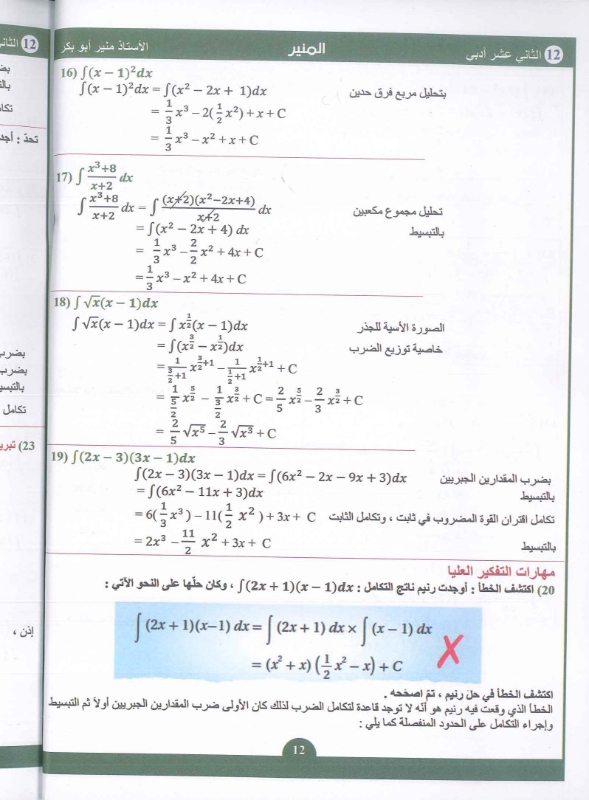 12 الثاني عشر أدبي
المنير
الأستاذ منير أبو بكر
16) ∫(x − 1)²dx
∫(x − 1)²dx = ∫(x² − 2x + 1)dx بتحليل مربع فرق حدين
= 1/3 x³ − 2(1/2 x²) + x + C
= 1/3 x³ − x² + x + C
17) ∫ (x³+8)/(x+2) dx
∫ (x³+8)/(x+2) dx = ∫ (x+2)(x²−2x+4)/(x+2) dx تحليل مجموع مكعبين
= ∫(x² − 2x + 4) dx بالتبسيط
= 1/3 x³ − 2/2 x² + 4x + C
= 1/3 x³ − x² + 4x + C
18) ∫ √x(x − 1)dx
∫ √x(x − 1)dx = ∫ x^(1/2)(x − 1)dx الصورة الأسية للجذر
= ∫(x^(3/2) − x^(1/2))dx خاصية توزيع الضرب
= 1/(3/2+1) x^(3/2+1) − 1/(1/2+1) x^(1/2+1) + C
= 1/(5/2) x^(5/2) − 1/(3/2) x^(3/2) + C = 2/5 x^(5/2) − 2/3 x^(3/2) + C
= 2/5 √x⁵ − 2/3 √x³ + C
19) ∫(2x − 3)(3x − 1)dx
∫(2x − 3)(3x − 1)dx = ∫(6x² − 2x − 9x + 3)dx بضرب المقدارين الجبريين
= ∫(6x² − 11x + 3)dx بالتبسيط
= 6(1/3 x³) − 11(1/2 x²) + 3x + C تكامل اقتران القوة المضروب في ثابت ، وتكامل الثابت
= 2x³ − 11/2 x² + 3x + C بالتبسيط
مهارات التفكير العليا
20) اكتشف الخطأ : أوجدت رنيم ناتج التكامل : ∫(2x + 1)(x − 1)dx ، وكان حلّها على النحو الآتي :
∫ (2x + 1)(x−1) dx = ∫ (2x + 1) dx × ∫ (x − 1) dx
= (x² + x) (1/2 x² − x) + C
اكتشف الخطأ في حل رنيم ، ثمّ اصححه .
الخطأ الذي وقعت فيه رنيم هو أنّه لا توجد قاعدة لتكامل الضرب لذلك كان الأولى ضرب المقدارين الجبريين أولاً ثم التبسيط
وإجراء التكامل على الحدود المنفصلة كما يلي :
12
12 الثاني
تحدّ : أجد
بضرب
بالتبسي
تكامل
23) تبرير
إذن ،